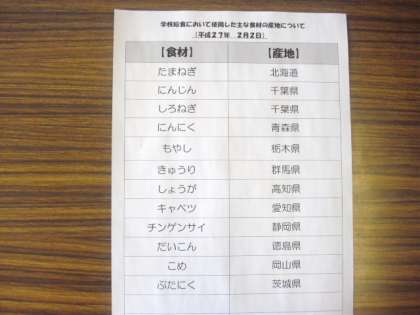 学校給食において使用した主な食材の産地について
【平成27年 2月2日】
【食材】 【産地】
たまねぎ 北海道
にんじん 千葉県
しろねぎ 千葉県
にんにく 青森県
もやし 栃木県
きゅうり 群馬県
しょうが 高知県
キャベツ 愛知県
チンゲンサイ 静岡県
だいこん 徳島県
こめ 岡山県
ぶたにく 茨城県